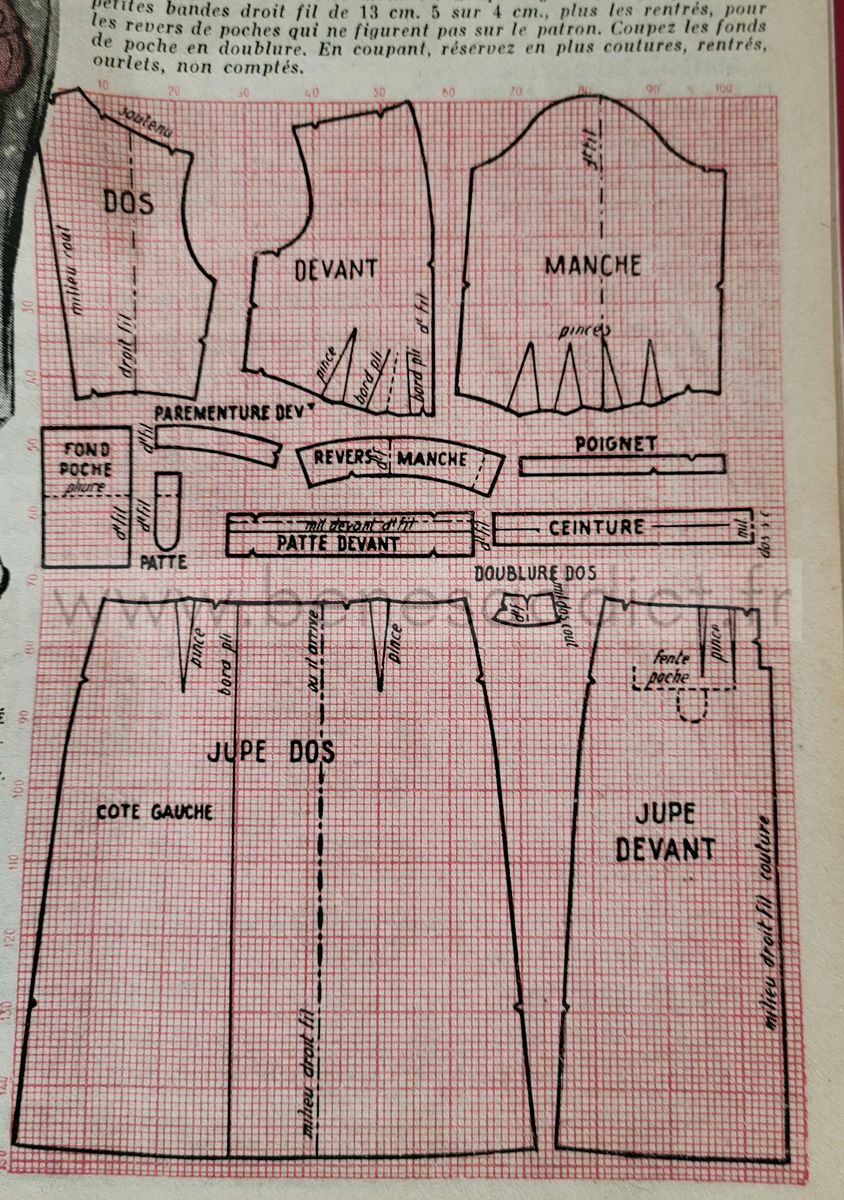 petites bandes droit fil de 13 cm. 5 sur 4 cm., plus les rentrés, pour
les revers de poches qui ne figurent pas sur le patron. Coupez les fonds
de poche en doublure. En coupant, réservez en plus coutures, rentrés,
ourlets, non comptés.
10 20 30 40 50 60 70 80 90 100
soutenu
DOS
milieu rout
droit fil
DEVANT
pince
bord pli
bord pli
d' fil
MANCHE
d'fil
pinces
30
40
50
60
70
80
90
100
110
120
130
140
150
PAREMENTURE DEVT
d'fil
FOND
POCHE
pliure
d'fil
d'fil
PATTE
REVERS MANCHE
d'fil
POIGNET
mil devant d'fil
PATTE DEVANT
d'fil
CEINTURE
mil
dos s c
DOUBLURE DOS
d'f
www.benesaddict.fr
pince
bord pli
ou il arrive
pince
JUPE DOS
COTE GAUCHE
milieu droit fil
fente
poche
pince
JUPE
DEVANT
milieu droit fil couture